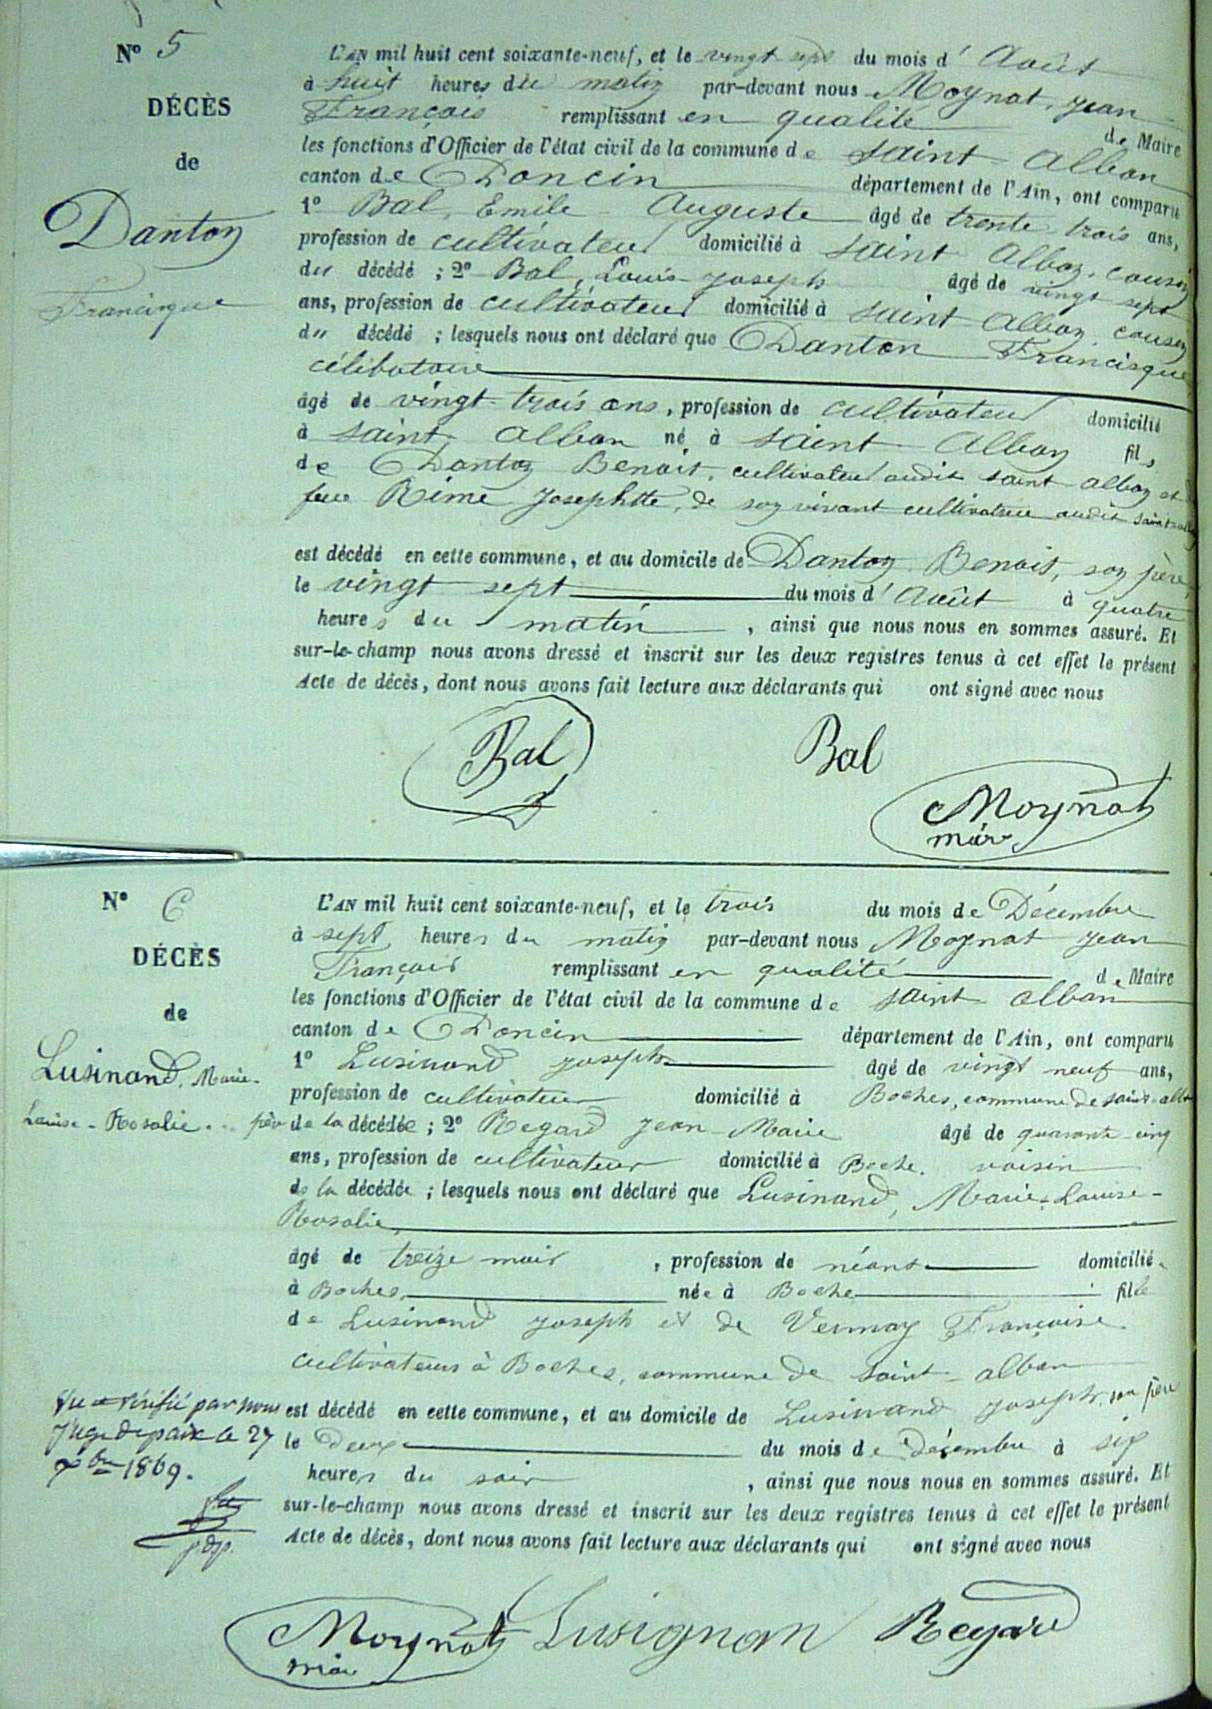 N° 5
DÉCÈS
de
Danton
Francisque
L'AN mil huit cent soixante-neuf, et le vingt sept du mois d' Août
à huit heures du matin par-devant nous Moynat, Jean
François remplissant en qualité de Maire
les fonctions d'Officier de l'état civil de la commune de Saint Alban
canton de Poncin département de l'Ain, ont comparu
1° Bal, Emile Auguste âgé de trente trois ans,
profession de cultivateur domicilié à Saint Alban, cousin
du décédé ; 2° Bal, Louis Joseph âgé de vingt sept
ans, profession de cultivateur domicilié à Saint Alban, cousin
du décédé ; lesquels nous ont déclaré que Danton Francisque
célibataire
âgé de vingt trois ans, profession de cultivateur domicilié
à Saint Alban né à Saint Alban fils
de Danton Benoit, cultivateur audit saint alban et de
feue Rime Josephte, de son vivant cultivatrice audit saint alban
est décédé en cette commune, et au domicile de Danton Benoit, son père,
le vingt sept du mois d' Août à quatre
heures du matin , ainsi que nous nous en sommes assuré. Et
sur-le-champ nous avons dressé et inscrit sur les deux registres tenus à cet effet le présent
Acte de décès, dont nous avons fait lecture aux déclarants qui ont signé avec nous
Bal Bal
Moynat
maire
N° 6
DÉCÈS
de
Lusinand, Marie-
Louise-Rosalie
L'AN mil huit cent soixante-neuf, et le trois du mois de Décembre
à sept heures du matin par-devant nous Moynat Jean
François remplissant en qualité de Maire
les fonctions d'Officier de l'état civil de la commune de saint alban
canton de Poncin département de l'Ain, ont comparu
1° Lusinand Joseph âgé de vingt neuf ans,
profession de cultivateur domicilié à Boches, commune de saint-alban
père de la décédée ; 2° Regard Jean-Marie âgé de quarante-cinq
ans, profession de cultivateur domicilié à Boche, voisin
de la décédée ; lesquels nous ont déclaré que Lusinand, Marie-Louise-
Rosalie,
âgé de treize mois , profession de néant domicilié
à Boches, née à Boche fille
de Lusinand Joseph et de Vernay Françoise
cultivateurs à Boches, commune de saint-alban
est décédé en cette commune, et au domicile de Lusinand Joseph, son père
le deux du mois de décembre à six
heures du soir , ainsi que nous nous en sommes assuré. Et
sur-le-champ nous avons dressé et inscrit sur les deux registres tenus à cet effet le présent
Acte de décès, dont nous avons fait lecture aux déclarants qui ont signé avec nous
Vu et vérifié par nous
Juge de paix le 27
xbre 1869.
Moynat Lusignan Regard
maire